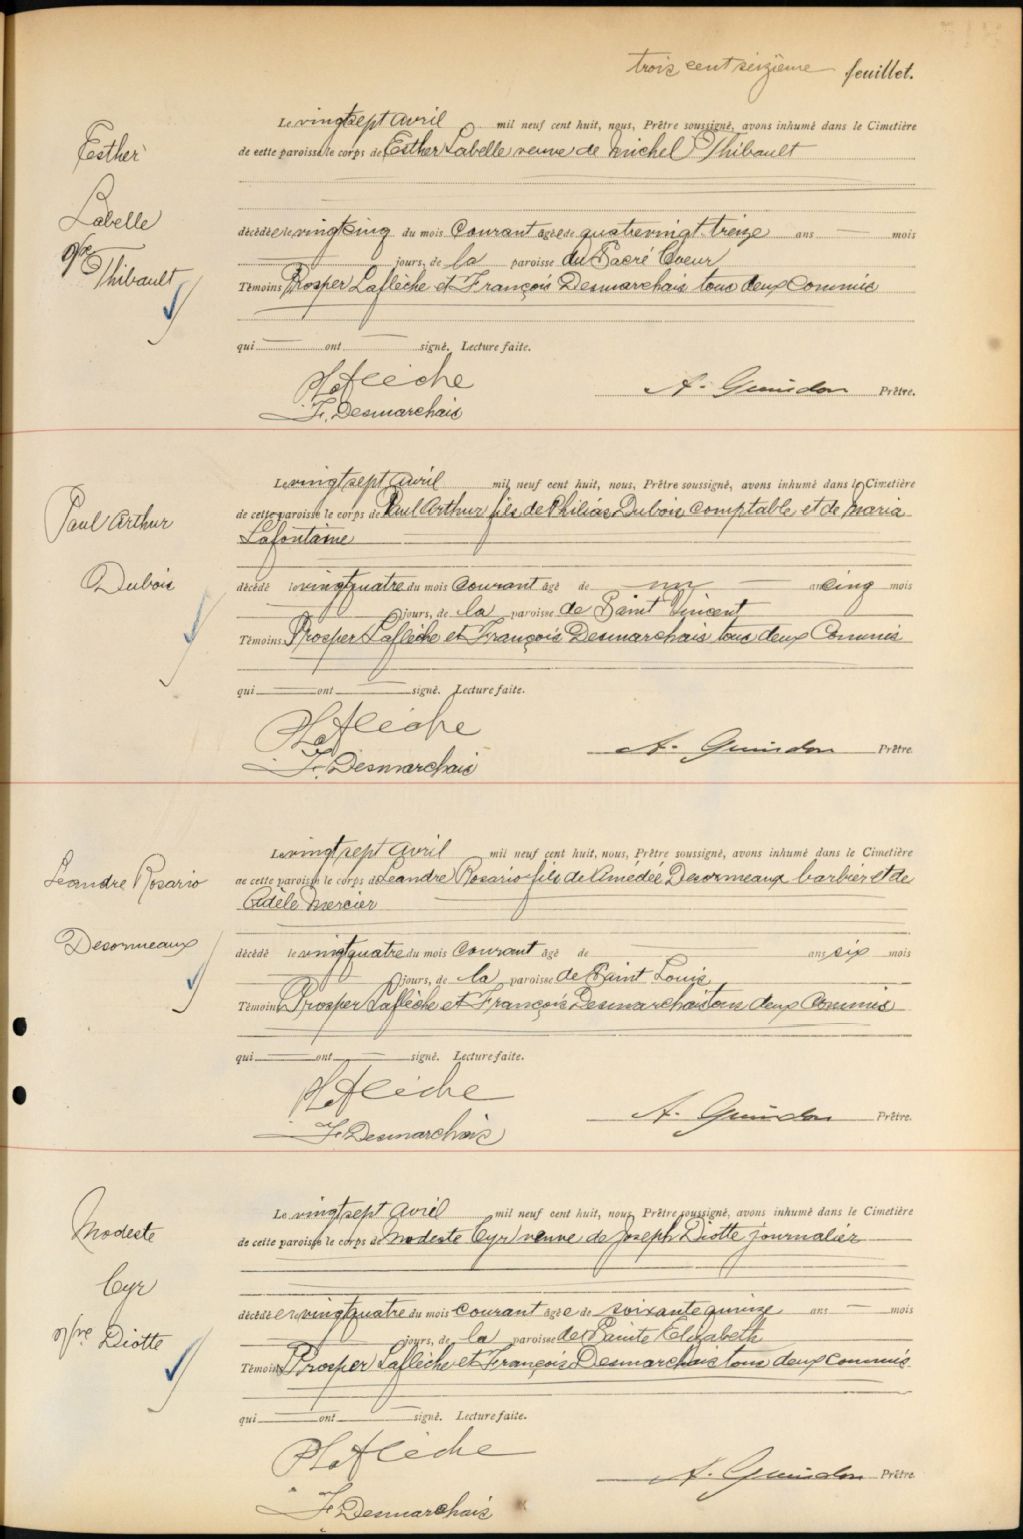 trois cent seizième feuillet.
Esther
Labelle
Vve
Thibault
Le vingt sept avril mil neuf cent huit, nous, Prêtre soussigné, avons inhumé dans le Cimetière
de cette paroisse le corps de Esther Labelle veuve de Michel Thibault
décédée le vingt cinq du mois courant âgée de quatre vingt treize ans — mois
jours, de la paroisse du Sacré Coeur
Témoins Prosper Laflèche et François Desmarchais tous deux Commis
qui ont signé. Lecture faite.
PLaflèche
F. Desmarchais
A. Guindon Prêtre.
Paul Arthur
Dubois
Le vingt sept avril mil neuf cent huit, nous, Prêtre soussigné, avons inhumé dans le Cimetière
de cette paroisse le corps de Paul Arthur fils de Philias Dubois comptable et de Maria
Lafontaine
décédé le vingt quatre du mois courant âgé de un — an cinq mois
jours, de la paroisse de Saint Vincent
Témoins Prosper Laflèche et François Desmarchais tous deux Commis
qui ont signé. Lecture faite.
PLaflèche
F. Desmarchais
A. Guindon Prêtre.
Léandre Rosario
Desormeaux
Le vingt sept avril mil neuf cent huit, nous, Prêtre soussigné, avons inhumé dans le Cimetière
de cette paroisse le corps de Léandre Rosario fils de Amédée Desormeaux barbier et de
Adèle Mercier
décédé le vingt quatre du mois courant âgé de ans six mois
jours, de la paroisse de Saint Louis
Témoins Prosper Laflèche et François Desmarchais tous deux Commis
qui ont signé. Lecture faite.
PLaflèche
F. Desmarchais
A. Guindon Prêtre.
Modeste
Cyr
Vve Diotte
Le vingt sept avril mil neuf cent huit, nous, Prêtre soussigné, avons inhumé dans le Cimetière
de cette paroisse le corps de Modeste Cyr veuve de Joseph Diotte journalier
décédée le vingt quatre du mois courant âgée de soixante quinze ans — mois
jours, de la paroisse de Sainte Elizabeth
Témoins Prosper Laflèche et François Desmarchais tous deux commis
qui ont signé. Lecture faite.
PLaflèche
F. Desmarchais
A. Guindon Prêtre